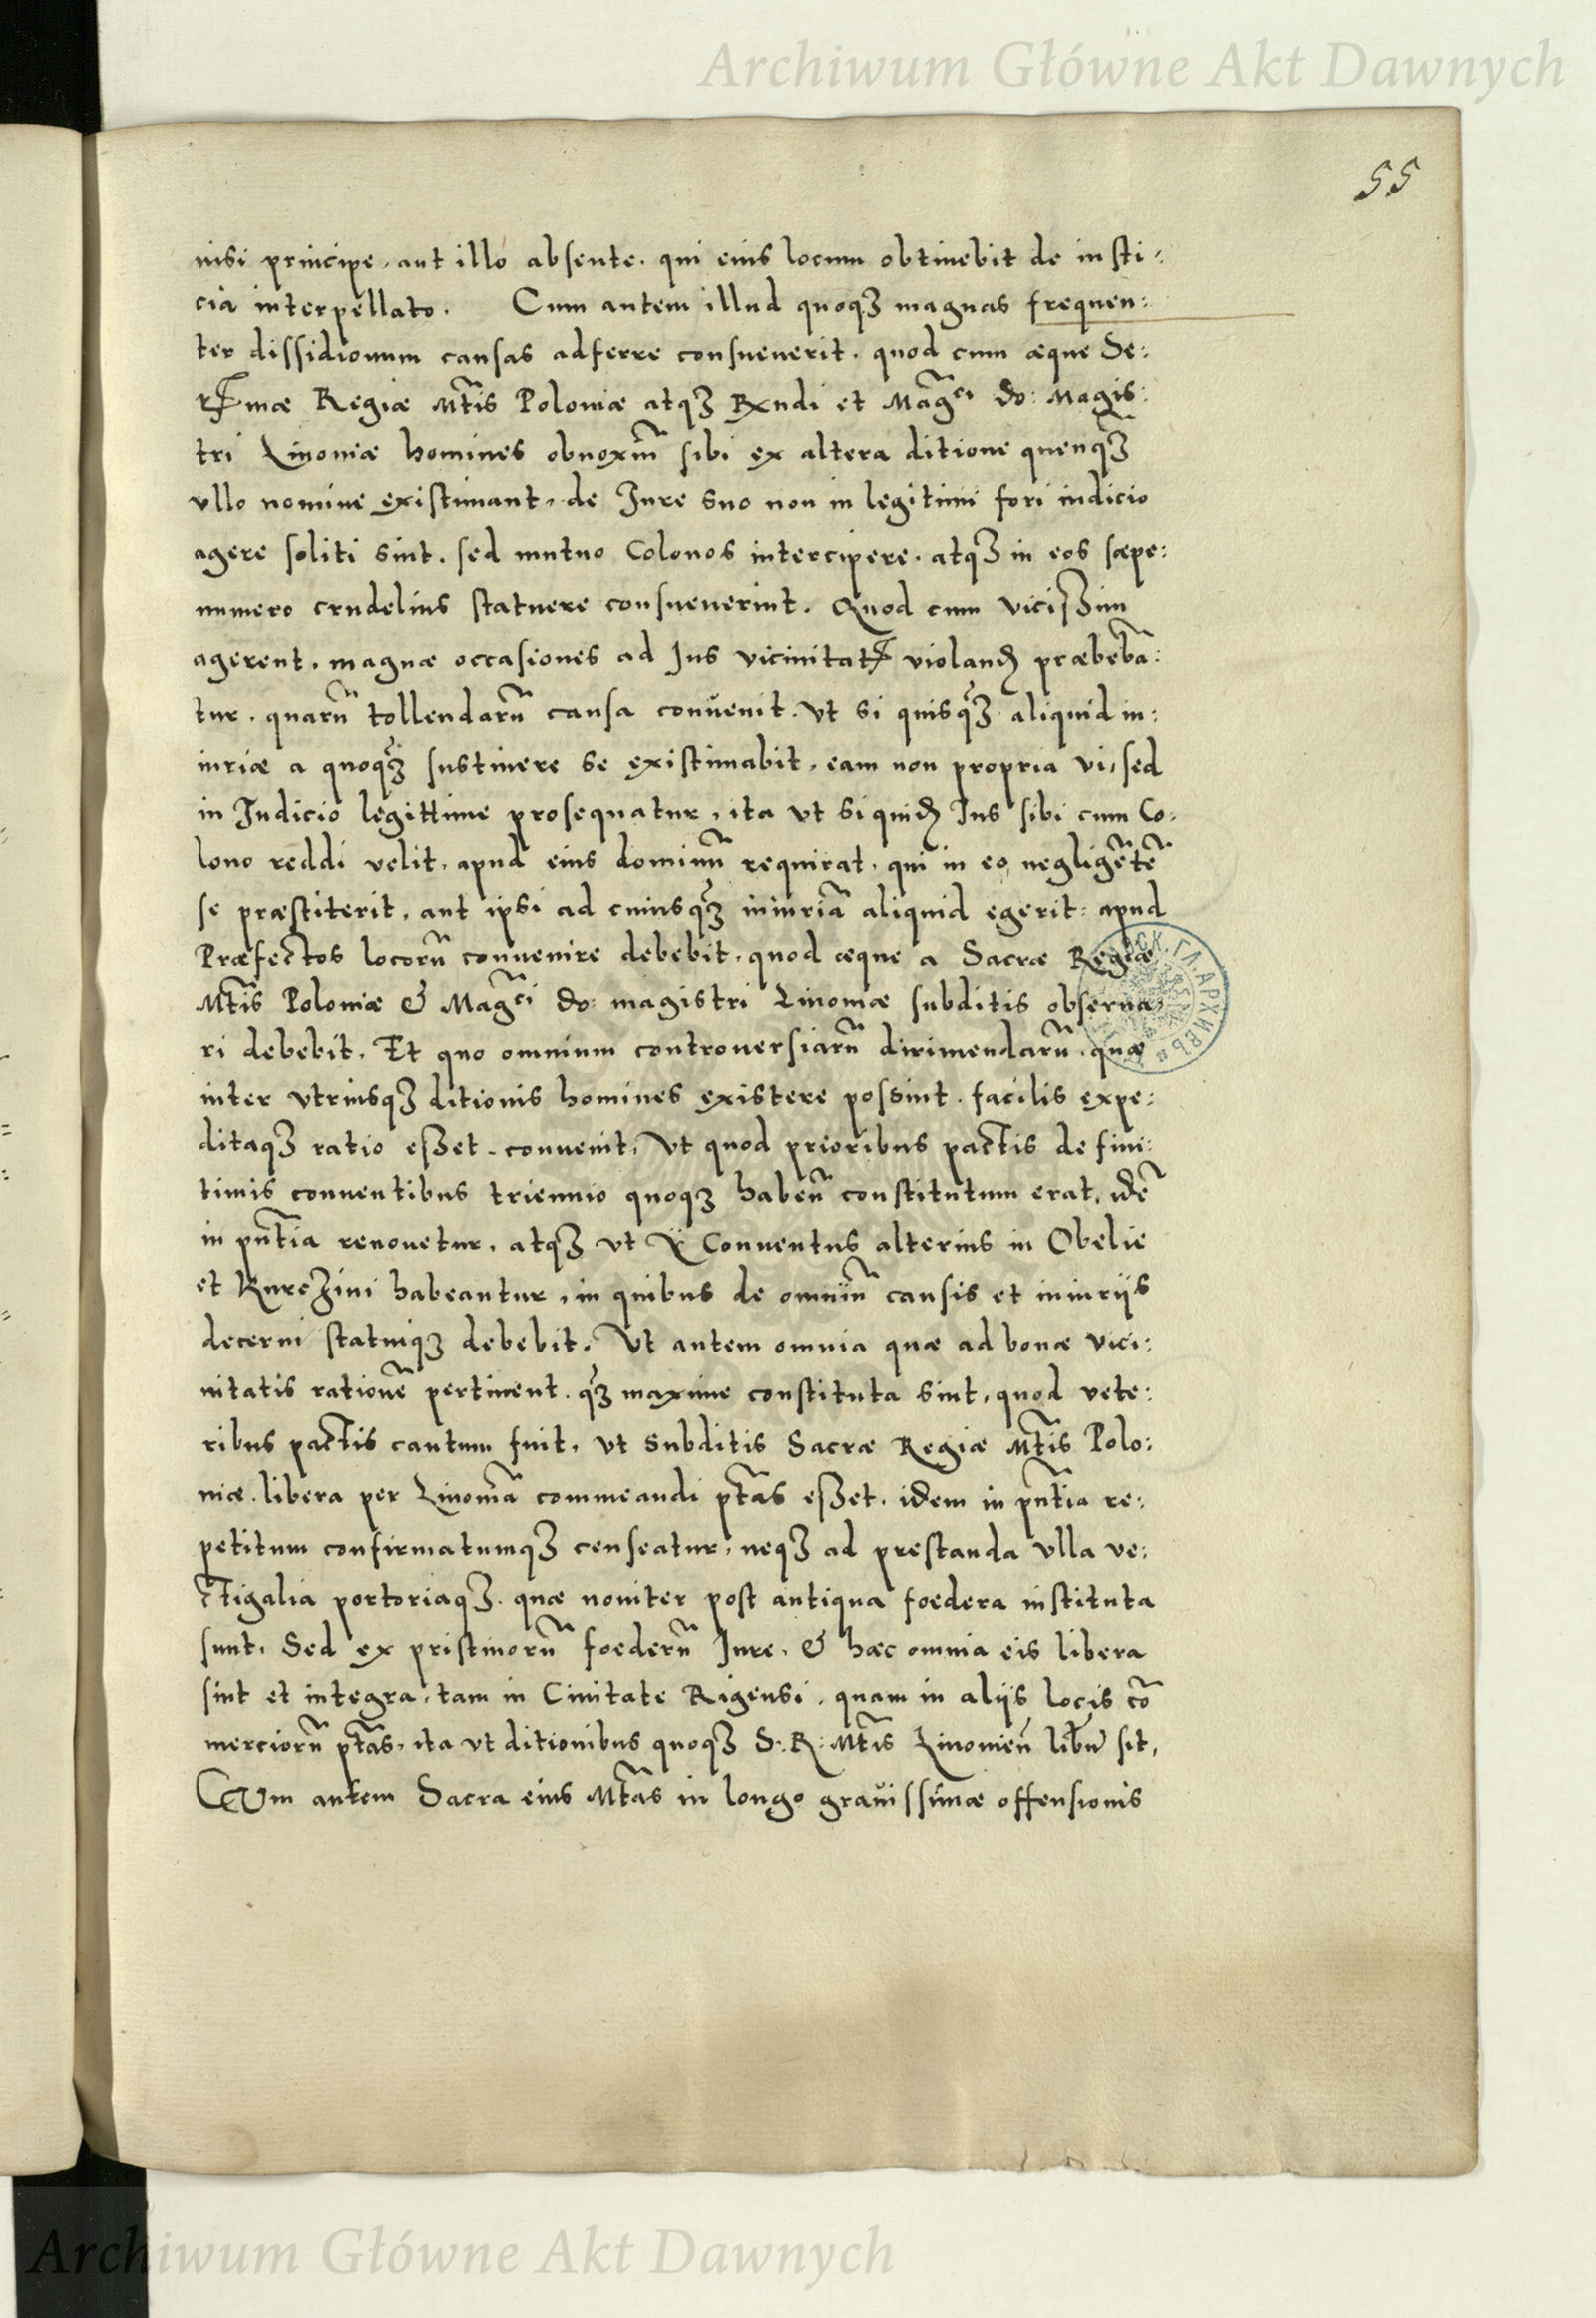 Archiwum Główne Akt Dawnych
55
nisi principe, aut illo absente, qui eius locum obtinebit de iusti:
cia interpellato. Cum autem illud quoqꝫ magnas frequen:
ter dissidiorum causas adferre consueuerit, quod cum æque Se:
rmæ Regiæ Mtis Poloniæ atqꝫ Rndi et Magci do: Magis:
tri Liuoniæ homines obnoxiũ sibi ex altera ditione quenqꝫ
vllo nomine existimant, de Iure suo non in legitimi fori iudicio
agere soliti sint, sed mutuo Colonos intercipere, atqꝫ in eos sæpe:
numero crudelius statuere consueuerint. Quod cum vicißim
agerent, magnæ occasiones ad Ius vicinitatꝭ violanđ præbebã:
tur, quarũ tollendarũ causa conuenit, Vt si quisqꝫ aliquid in:
iuriæ a quoqꝫ sustinere se existimabit, eam non propria vi, sed
in Iudicio legittime prosequatur, ita vt siquiđ Ius sibi cum Co:
lono reddi velit, apud eius dominũ requirat, qui in eo negligẽtẽ
se præstiterit, aut ipsi ad cuiusqꝫ iniuriã aliquid egerit: apud
Præfectos locorũ conuenire debebit, quod æque a Sacræ Regiæ
Mtis Poloniæ & Magci do: magistri Liuoniæ subditis obserua:
ri debebit. Et quo omnium controuersiarũ dirimendarũ, quæ
inter vtriusqꝫ ditionis homines existere possint, facilis expe:
ditaqꝫ ratio eßet, conuenit, Vt quod prioribus pactis de fini:
timis conuentibus triennio quoqꝫ habeñ constitutum erat, idẽ
in pñtia renouetur, atqꝫ vt Conuentus alterius in Obelie
et Kureʒini habeantur, in quibus de omniũ causis et iniurijs
decerni statuiqꝫ debebit. Vt autem omnia quæ ad bonæ vici:
nitatis rationẽ pertinent, qꝫ maxime constituta sint, quod vete:
ribus pactis cautum fuit, vt subditis Sacræ Regiæ Mtis Polo:
niæ, libera per Liuoniã commeandi ptãs eßet, idem in pñtia re:
petitum confirmatumqꝫ censeatur, neqꝫ ad prestanda vlla ve:
ctigalia portoriaqꝫ, quæ nouiter post antiqua foedera instituta
sunt, Sed ex pristinorũ foederũ Iure, & hæc omnia eis libera
sint et integra, tam in Ciuitate Rigensi, quam in alijs locis cõ
merciorũ ptãs, ita vt ditionibus quoqꝫ S: R: Mtis Liuonieñ libũ sit,
Cum autem Sacra eius Mtas in longo grauissimæ offensionis
Archiwum Główne Akt Dawnych